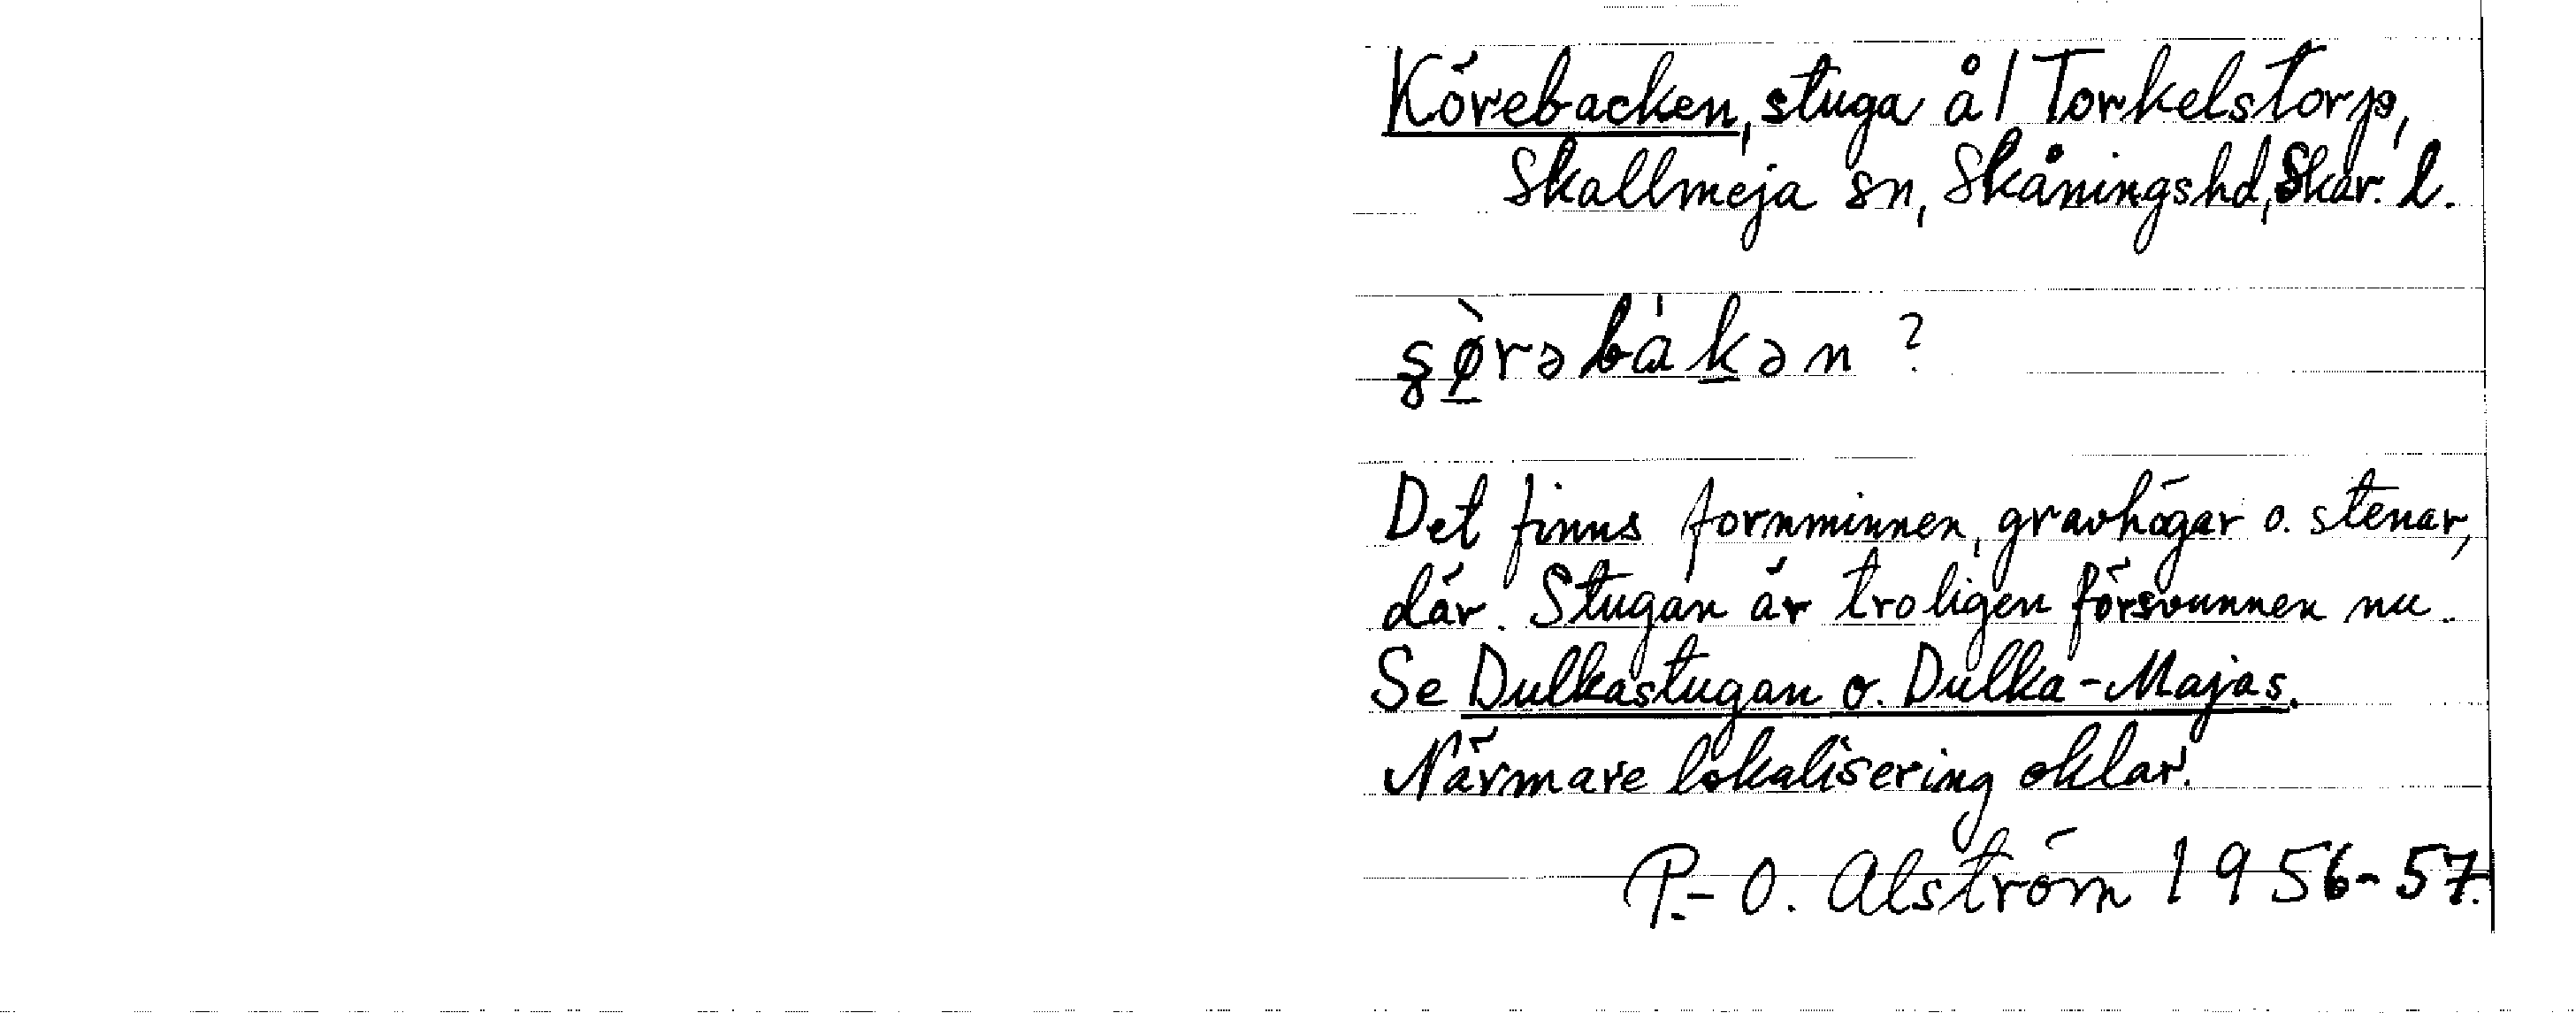 Körebacken, stuga å/ Torkelstorp,
Skallmeja sn, Skånings hd, Skar. l.
ʂø̀rəbákən ?
Det finns fornminnen, gravhögar o. stenar,
där. Stugan är troligen försvunnen nu.
Se Dulkastugan o. Dulka-Majas.
Närmare lokalisering oklar.
P.-O. Alström 1956-57.